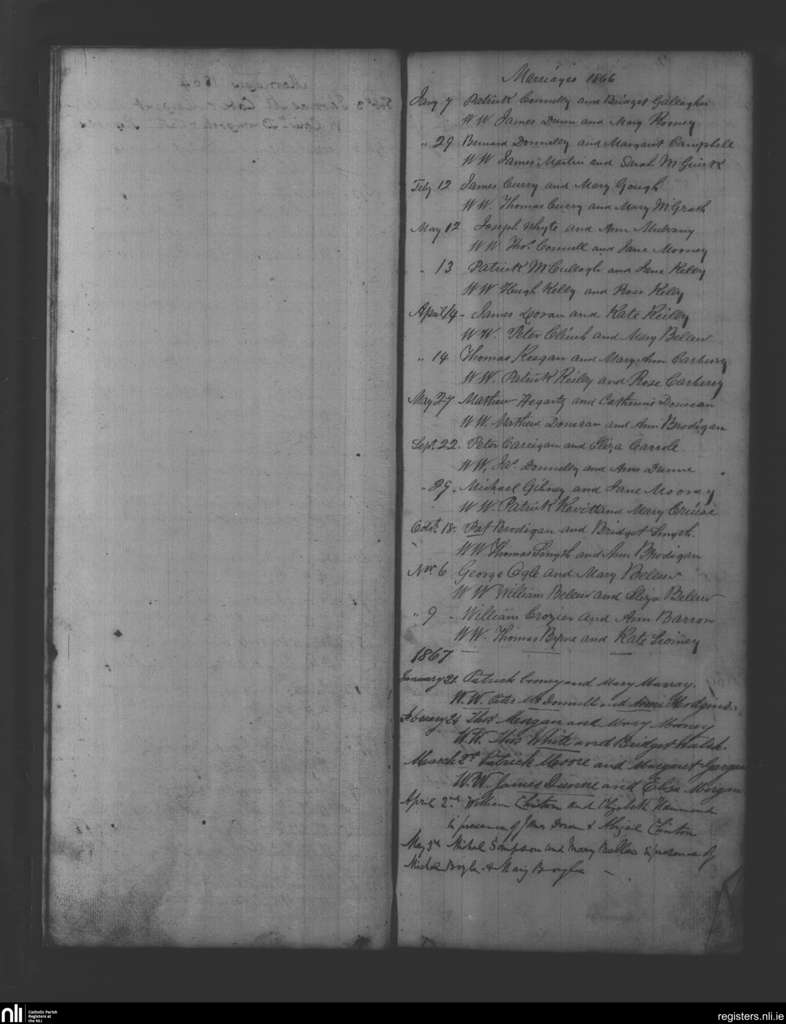 Marriages 1866
Jany 7 Patrick Connolly and Bridget Gallagher
W W James Dunn and Mary Rooney
" 29 Bernard Donnelly and Margaret Campbell
W W James Martin and Sarah McGuirk
Feby 12 James Curry and Mary Gough
W W. Thomas Curry and Mary McGrath
May 12 Joseph Whyte and Ann Mulvany
W W. Thos. Connell and Jane Mooney
" 13 Patrick McCullogh and Jane Kelly
W W Hugh Kelly and Rose Kelly
April 14 - James Doran and Kate Reilly
W W. Peter and Mary Belew
" 14 Thomas Keegan and Mary Ann Carberry
W W. Patrick Reilly and Rose Carberry
May 27 Mathew Hegarty and Catherine Donovan
W W. Mathew Donovan and Ann Brodigan
Sept. 22. Peter Carrigan and Eliza Carrole
W W, Jas. Donnelly and Anne Dunne
" 29. Michael Gibney and Jane Mooney
W W. Patrick and Mary Cruise
Octbr. 18. Pat Brodigan and Bridget Smyth.
W W Thomas Smyth and Ann Brodigan
Nov 6 George Ogle and Mary Belew
W W William Belew and Eliza Belew
" 9 - William Crozier and Ann Barron
W W. Thomas Byrne and Kate
1867
January 21. Patrick Cooney and Mary Murray.
W. W. Peter McDonnell and Anne Hodgins.
February 26 Thos Morgan and Mary Mooney
W. W. Thos White and Bridget Walsh.
March 3rd Patrick Moore and Margaret
W. W. James Dunne and Eliza Morgan
April 2nd William Clinton and Elizabeth Hammond
in presence of James Doran & Abigail Clinton
May 3rd Michal Simpson and Mary in presence of
Michal Boyle & Mary Boyle
nli
Catholic Parish
Registers at
the NLI
registers.nli.ie